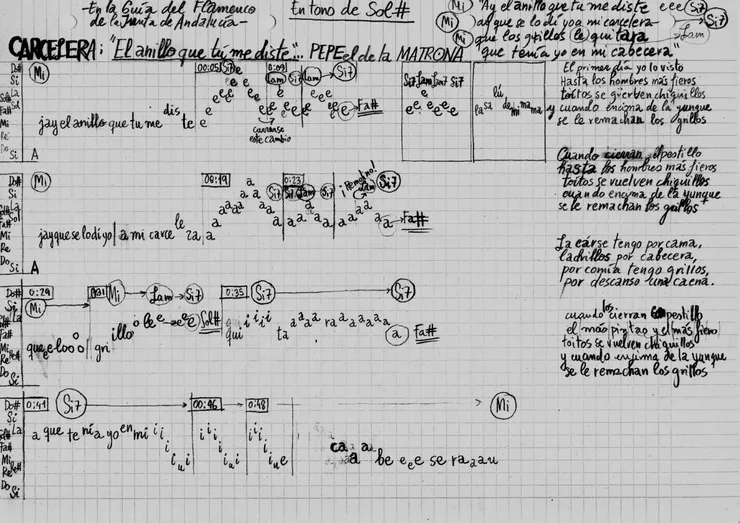 -En la Guía del Flamenco de la Junta de Andalucía-
En tono de Sol#
Mi "Ay el anillo que tu me diste eee Si7
Mi ay que se lo di yo a mi carcelera Si7
Mi que los grillos le quitara Lam
"que tenía yo en mi cabecera"
CARCELERA: "El anillo que tu me diste"... PEPE el de la MATRONA
Mi
00:05 Si7
0:09
Lam Si7 Lam Si7
jay el anillo que tu me dis te e
Fa#
este cambio
A
Si7 Lam Lam7 Si7
El primer día yo lo visto
Hasta los hombres más fieros
toitos se
y cuando encima de la yunque
se le remachan los grillos
Mi
00:19
0:23
Si7 Lam Si7
Si7
jay que se lo di yo a mi carce le ra a
Fa#
A
Cuando cierran el postillo
hasta los hombres más fieros
toitos se vuelven chiquillos
cuando encima de la yunque
se le remachan los grillos
La cárse tengo por cama,
ladrillos por cabecera,
por comía tengo grillos,
por descanso una caena.
0:29
Mi
Mi Lam Si7
0:35 Si7
Si7
que e lo o o gri illo o le e Sol#
qui i i i i ta a a a ra a a a a a a Fa#
cuando los cierran postillo
el más pintao y el más fiero
toitos se vuelven chiquillos
y cuando enjima de la yunque
se le remachan los grillos
0:41 Si7
00:46
0:48
Mi
a que te nía yo en mi i i
ca a a a be e e e se ra a a u